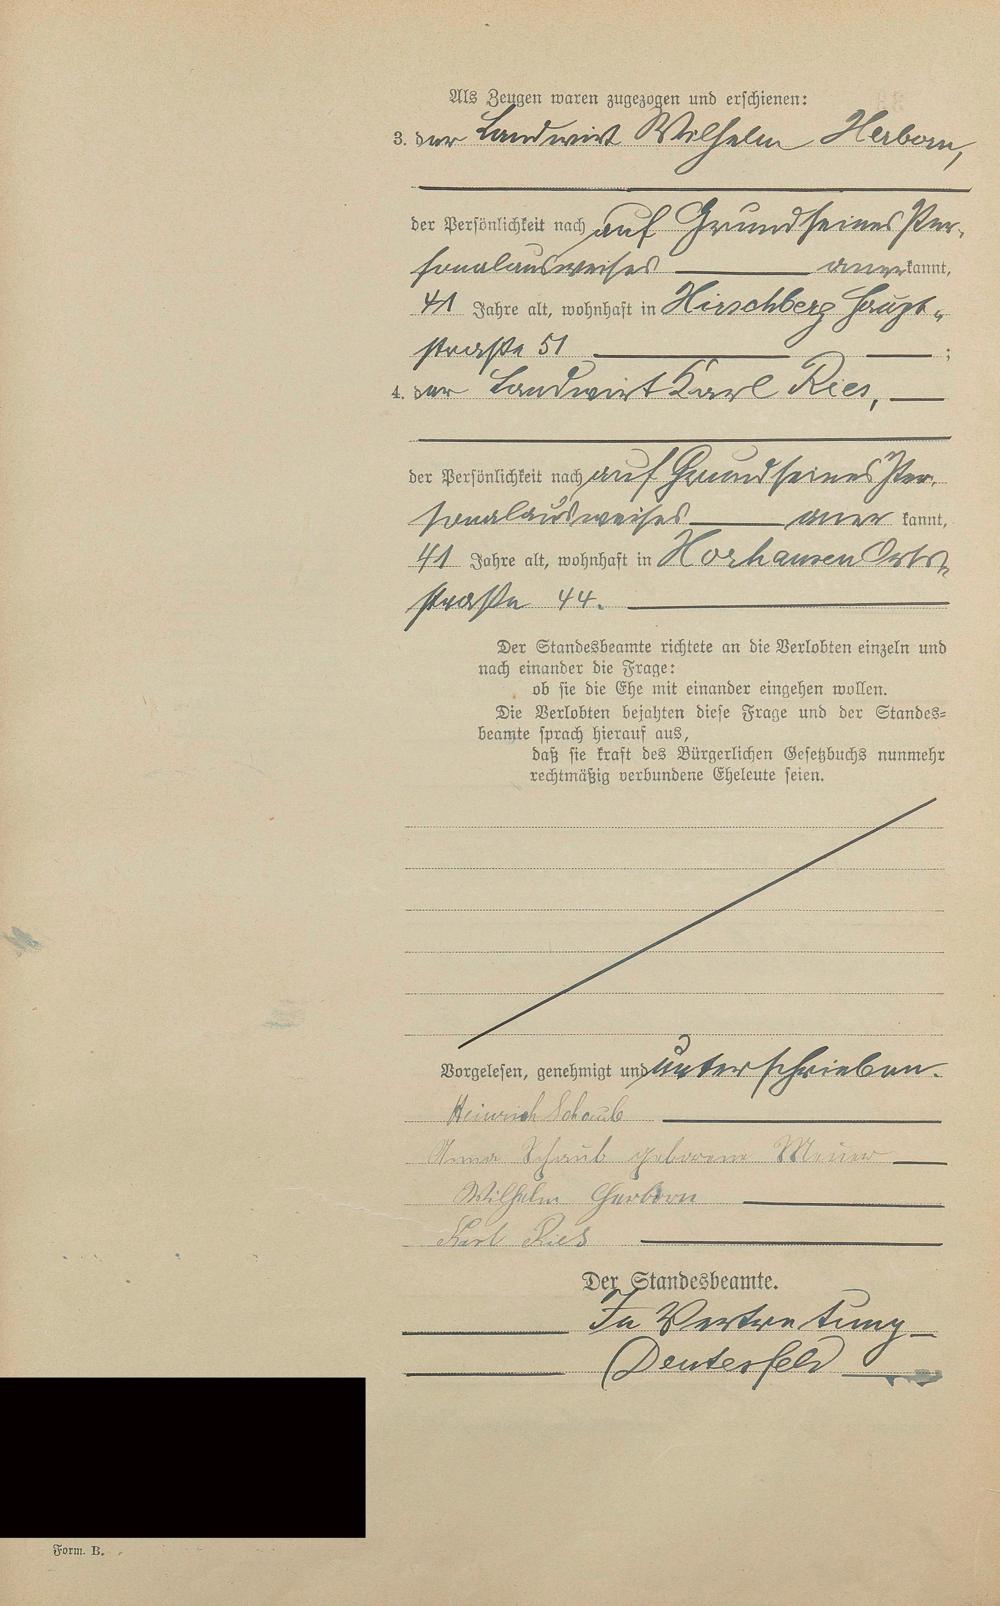 Als Zeugen waren zugezogen und erschienen:
3. der Landwirt Wilhelm Herborn,
der Persönlichkeit nach auf Grund seines Per-
sonalausweises anerkannt,
41 Jahre alt, wohnhaft in Hirschberg Haupt-
straße 51 ;
4. der Landwirt Karl Ries,
der Persönlichkeit nach auf Grund seines Per-
sonalausweises aner kannt,
41 Jahre alt, wohnhaft in Horhausen Orts-
straße 44.
Der Standesbeamte richtete an die Verlobten einzeln und
nach einander die Frage:
ob sie die Ehe mit einander eingehen wollen.
Die Verlobten bejahten diese Frage und der Standes-
beamte sprach hierauf aus,
daß sie kraft des Bürgerlichen Gesetzbuchs nunmehr
rechtmäßig verbundene Eheleute seien.
Vorgelesen, genehmigt und unterschrieben.
Heinrich Schaub
Anna Schaub geborene
Wilhelm Herborn
Karl Ries
Der Standesbeamte.
In Vertretung
Deuterfeld
Form. B.